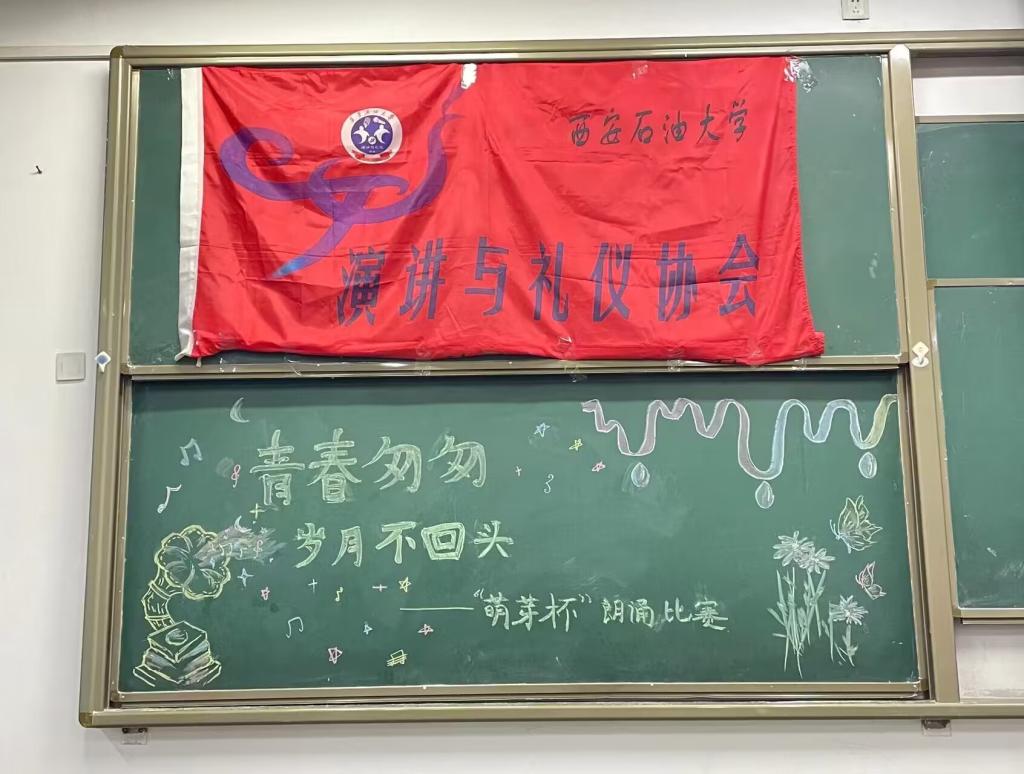 西安石油大学
演讲与礼仪协会
青春匆匆
岁月不回头
——“萌芽杯”朗诵比赛